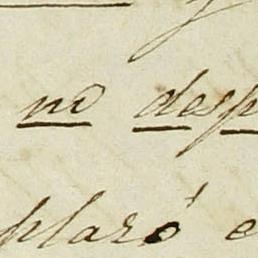 no desp
plaró e